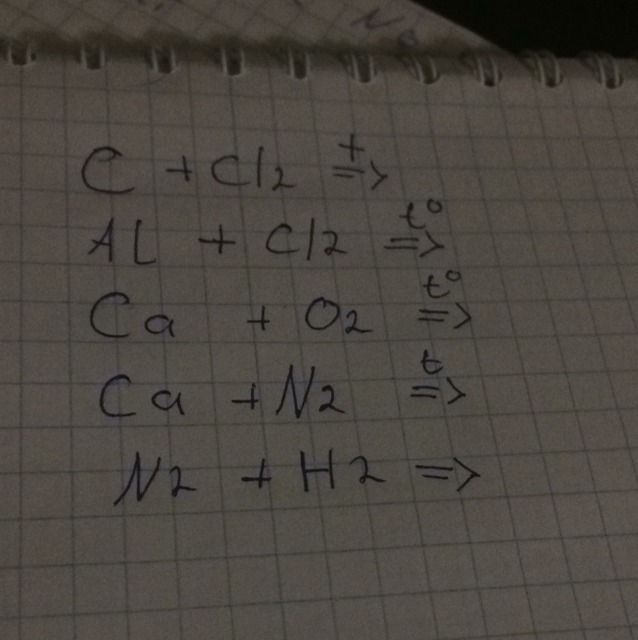 C + Cl2 t=>
Al + Cl2 t°=>
Ca + O2 t°=>
Ca + N2 t=>
N2 + H2 =>